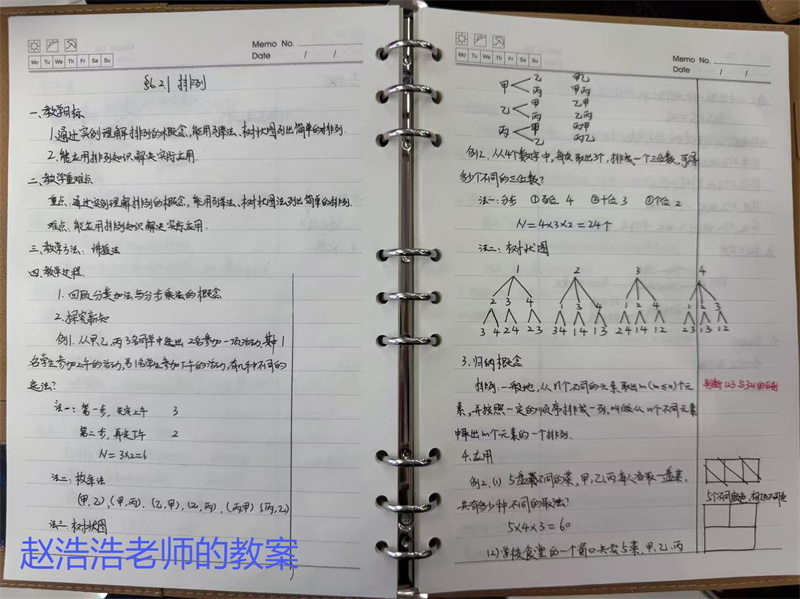 Memo No.
Mo Tu We Th Fr Sa Su
Date / /
§6.2.1 排列
一、教学目标
1.通过实例理解排列的概念,能用列举法、树状图列出简单的排列.
2.能应用排列知识解决实际应用.
二、教学重难点
重点、通过实例理解排列的概念,能用列举法、树状图法列出简单的排列.
难点、能应用排列知识解决实际应用.
三、教学方法:讲授法
四、教学过程
1.回顾分类加法与分步乘法的概念
2.探究新知
例1.从甲、乙、丙3名同学中选出2名参加一项活动,其中1
名学生参加上午的活动,另1名学生参加下午的活动,有几种不同的
选法?
法一:第一步,先定上午 3
第二步,再定下午 2
N=3×2=6
法二:枚举法
(甲,乙),(甲,丙),(乙,甲),(乙,丙),(丙,甲)(丙,乙)
法三:树状图
赵浩浩老师的教案
Memo No.
Mo Tu We Th Fr Sa Su
Date / /
乙 甲乙
甲
丙 甲丙
甲 乙甲
乙
丙 乙丙
甲 丙甲
丙
乙 丙乙
例2.从4个数字中,每次取出3个,排成一个三位数,可得
多少个不同的三位数?
法一:分步 ①百位 4 ②十位 3 ③个位 2
N=4×3×2=24个
法二:树状图
1 2 3 4
2 3 4 1 3 4 1 2 4 1 2 3
3 4 2 4 2 3 3 4 1 4 1 3 2 4 1 4 1 2 2 3 1 3 1 2
3.归纳概念
排列:一般地,从n个不同的元素取出m(m≤n)个元
素,并按照一定的顺序排成一列,叫做从n个不同元素
中取出m个元素的一个排列.
判断123与321的
4.应用
例2.(1)5盘不同的菜,甲,乙,丙每人各取一盘菜,
共有多少种不同的取法?
5×4×3=60
5个不同
(2)学校食堂的一个窗口共卖5菜,甲、乙、丙